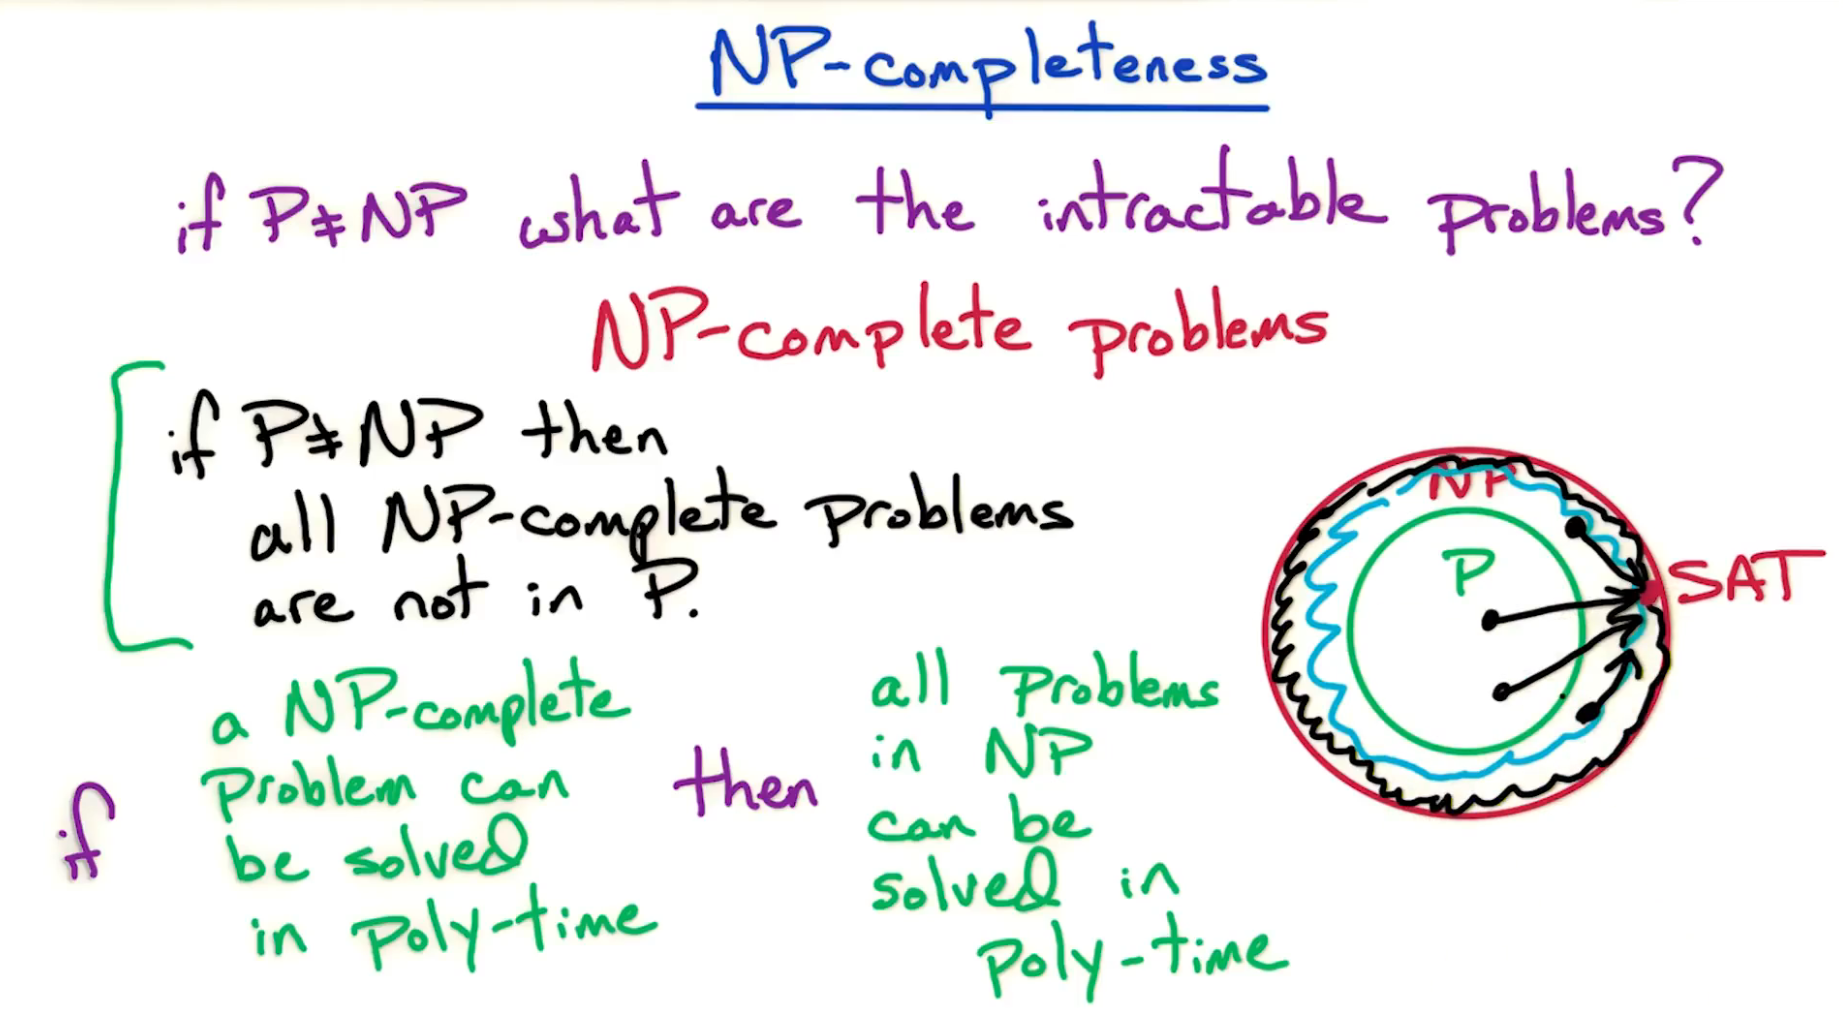 NP-completeness
if P≠NP what are the intractable problems?
NP-complete problems
if P≠NP then
all NP-complete problems
are not in P.
NP
P
SAT
if
a NP-complete
problem can
be solved
in poly-time
then
all problems
in NP
can be
solved in
poly-time